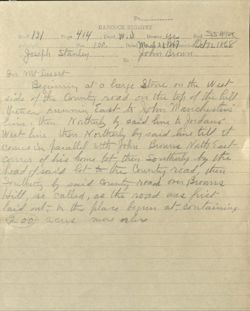 HANCOCK REGISTRY
Vol 131 Page 414
Joseph Stanley to John Brown
In Mt Desert
Beginning at a large Stone on the West
side of the County road on the top of the hill
thence running East to John Manchesters
line, then Northerly by said line to Jordans
West line then Northerly by said line till it
comes in parallel with John Browns North East
corner of his home lot then Southerly by the
head of said lot to the County road, then
Southerly by said County Road over Browns
Hill, so called, as the road was first
laid out to the place begun at containing
200 acres more or less